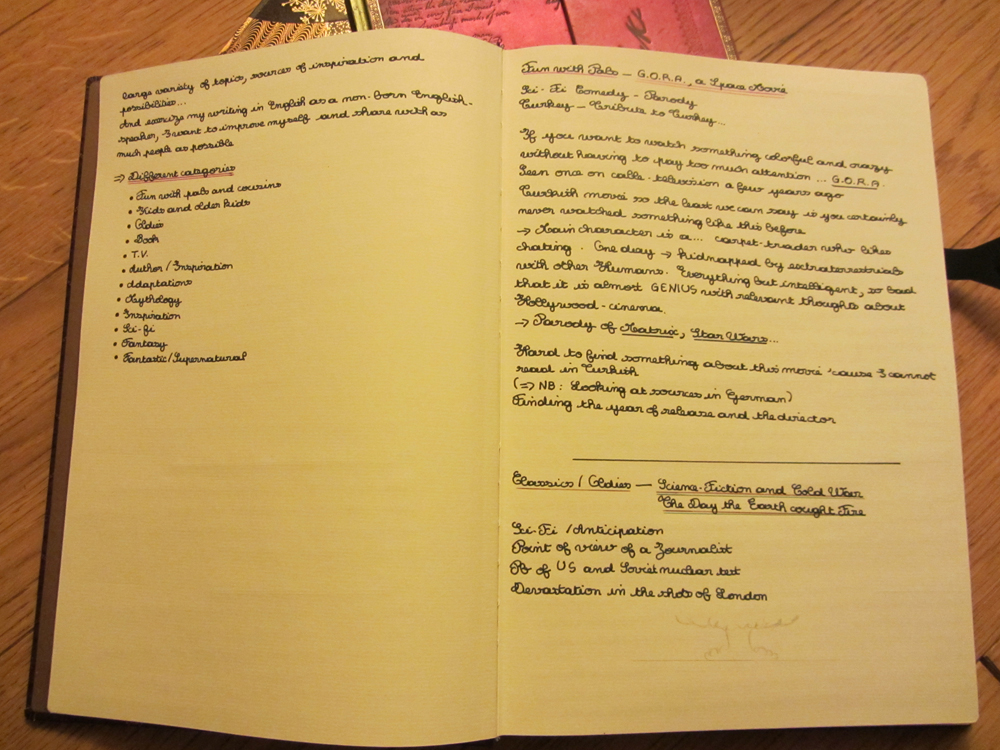 large variety of topics, sources of inspiration and
possibilities...
And exercize my writing in English as a non-born English-
speaker, I want to improve myself and share with as
much people as possible
=> Different categories
• Fun with pals and cousins
• Kids and older kids
• Oldies
• Book
• T.V.
• Author / Inspiration
• Adaptations
• Mythology
• Inspiration
• Sci-fi
• Fantasy
• Fantastic/Supernatural
Fun with Pals — G.O.R.A., a Space Movie
Sci-Fi Comedy - Parody
Turkey — Tribute to Turkey...
If you want to watch something colorful and crazy
without having to pay too much attention ... G.O.R.A.
Seen once on cable-television a few years ago
Turkish movie so the least we can say is you certainly
never watched something like this before
→ Main character is a... carpet-trader who likes
chating. One day → kidnapped by extraterrestrials
with other Humans. Everything but intelligent, so bad
that it is almost GENIUS with relevant thoughts about
Hollywood-cinema.
→ Parody of Matrix, Star Wars...
Hard to find something about this movie 'cause I cannot
read in Turkish
(=> NB: Looking at sources in German)
Finding the year of release and the director
Classics / Oldies — Science-Fiction and Cold War
The Day the Earth caught Fire
Sci-Fi / Anticipation
Point of view of a Journalist
Pb of US and Soviet nuclear test
Devastation in the shots of London